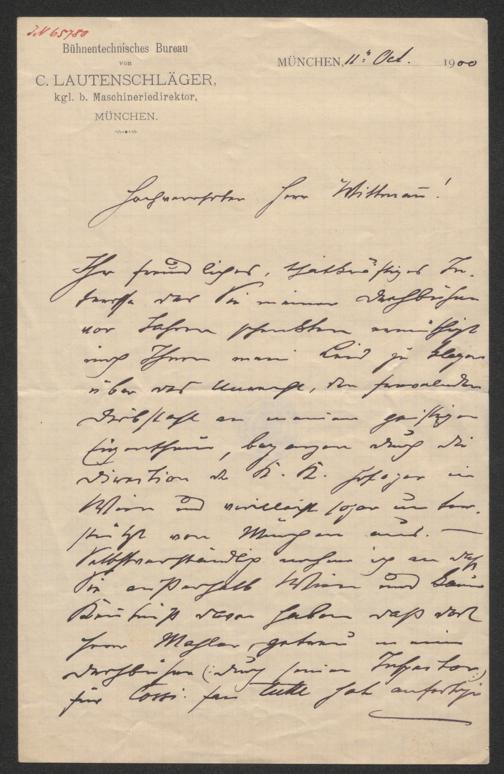 JN 65780
Bühnentechnisches Bureau
von
C. LAUTENSCHLÄGER,
kgl. b. Maschineriedirektor,
MÜNCHEN.
MÜNCHEN, 11t Oct. 1900
Hochverehrter Herr Wittmann!
Ihr freundliches, thatkräftiges In-
teresse das Sie meiner Drehbühne
vor Jahren schenkten ermuthigt
mich Ihnen mein Leid zu klagen
über das Unrecht, den
Diebstahl an meinem geistigen
Eigenthum, begangen durch die
Direction der K. K. Hofoper in
Wien und vielleicht sogar unter-
stützt von München aus. —
Selbstverständlich nehme ich an daß
Sie außerhalb Wien und kaum
Kenntniß davon haben daß dort
Herr Mahler genau meine
Drehbühne (: durch seinen Inspector :)
für Cosi fan tutte hat anfertigen